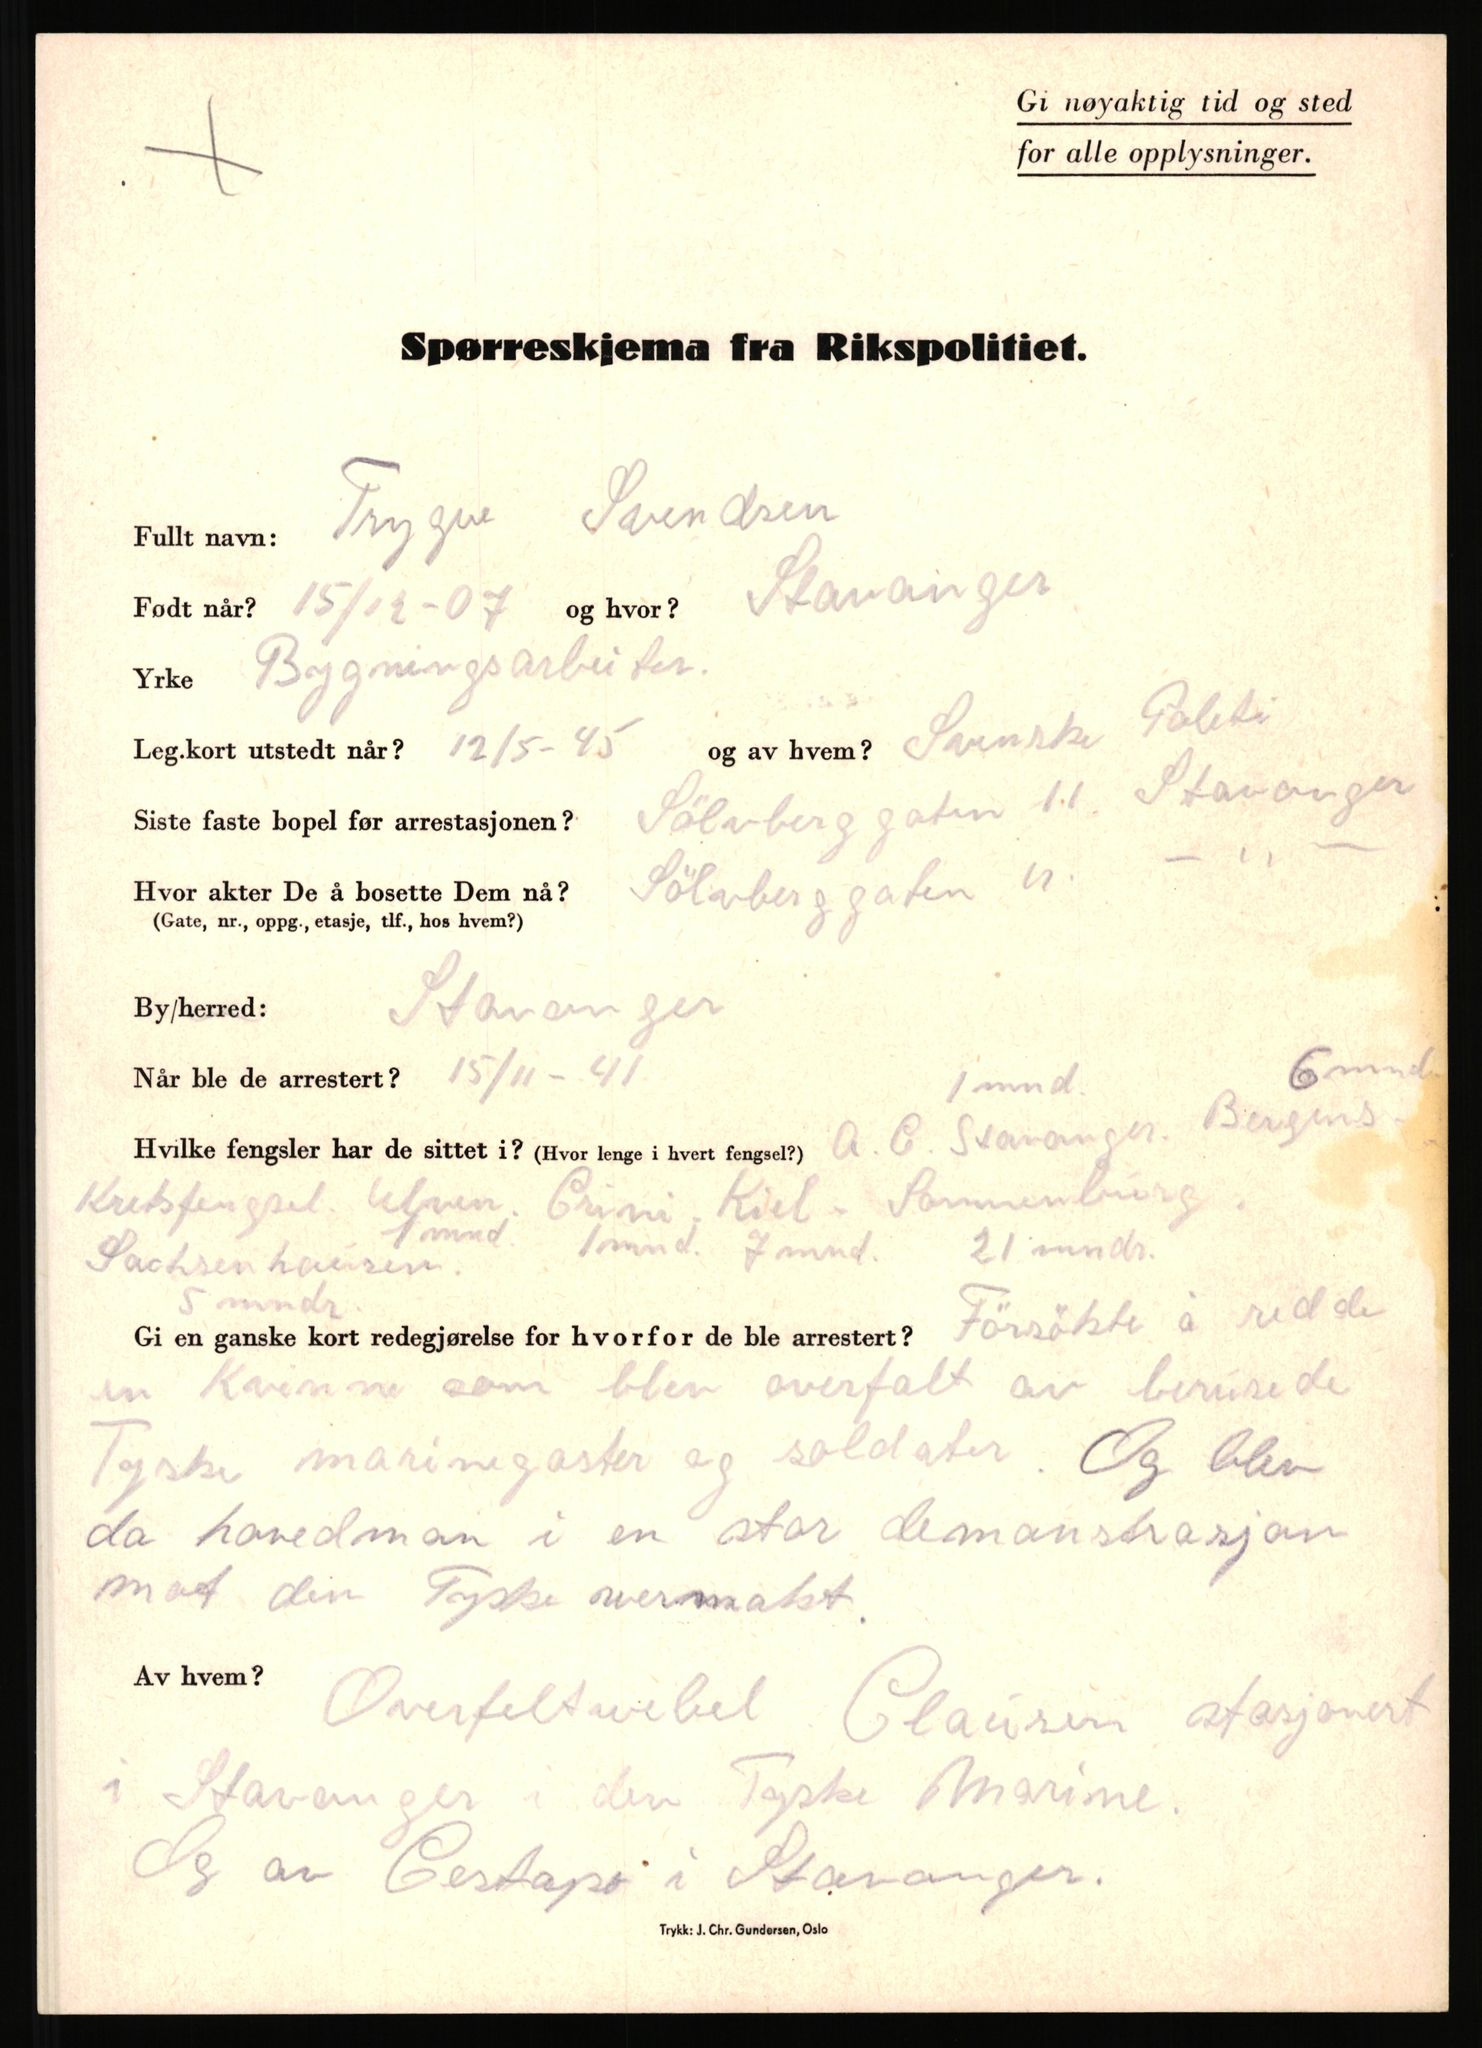 Gi nøyaktig tid og sted
for alle opplysninger.
Spørreskjema fra Rikspolitiet.
Fullt navn: Trygve Svendsen
Født når? 15/12-07 og hvor? Stavanger
Yrke Bygningsarbeiter.
Leg.kort utstedt når? 12/5-45 og av hvem? Svenske Politi
Siste faste bopel før arrestasjonen? Sölvberggaten 11. Stavanger
Hvor akter De å bosette Dem nå? Sölvberggaten 11. — ,, —
(Gate, nr., oppg., etasje, tlf., hos hvem?)
By/herred: Stavanger
Når ble de arrestert? 15/11-41
1 mnd. 6 mndr
Hvilke fengsler har de sittet i? (Hvor lenge i hvert fengsel?) A. C. Stavanger. Bergens-
Kretsfengsel. Ulven. Crini. Kiel - Sonnenburg.
1 mnd. 1 mnd. 7 mnd. 21 mndr.
Sachsenhausen.
5 mndr.
Gi en ganske kort redegjørelse for hvorfor de ble arrestert? Försökte å redde
en Kvinne som blev overfalt av berusede
Tyske marinegaster og soldater. Og blev
da hovedman i en stor demonstrasjon
mot den Tyske vermakt.
Av hvem? Overfeltwebel Clausen stasjonert
i Stavanger i den Tyske Marine.
Og av Gestapo i Stavanger.
Trykk: J. Chr. Gundersen, Oslo